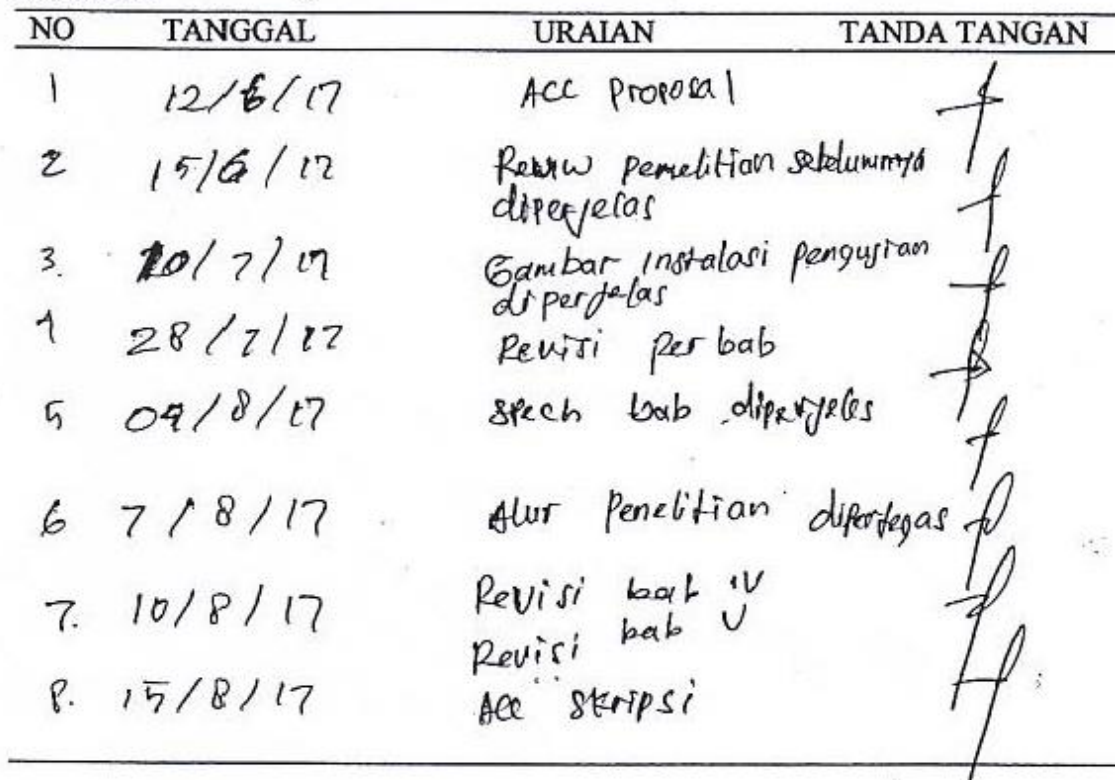 NO TANGGAL URAIAN TANDA TANGAN
1 12/6/17 ACC Proposal
2 15/6/17 Review penelitian sebelumnya
diperjelas
3. 10/7/17 Gambar instalasi pengujian
diperjelas
4 28/7/17 Revisi per bab
5 04/8/17 spech bab diperjelas
6 7/8/17 Alur Penelitian dipertegas
7. 10/8/17 Revisi bab IV
Revisi bab V
8. 15/8/17 Acc skripsi